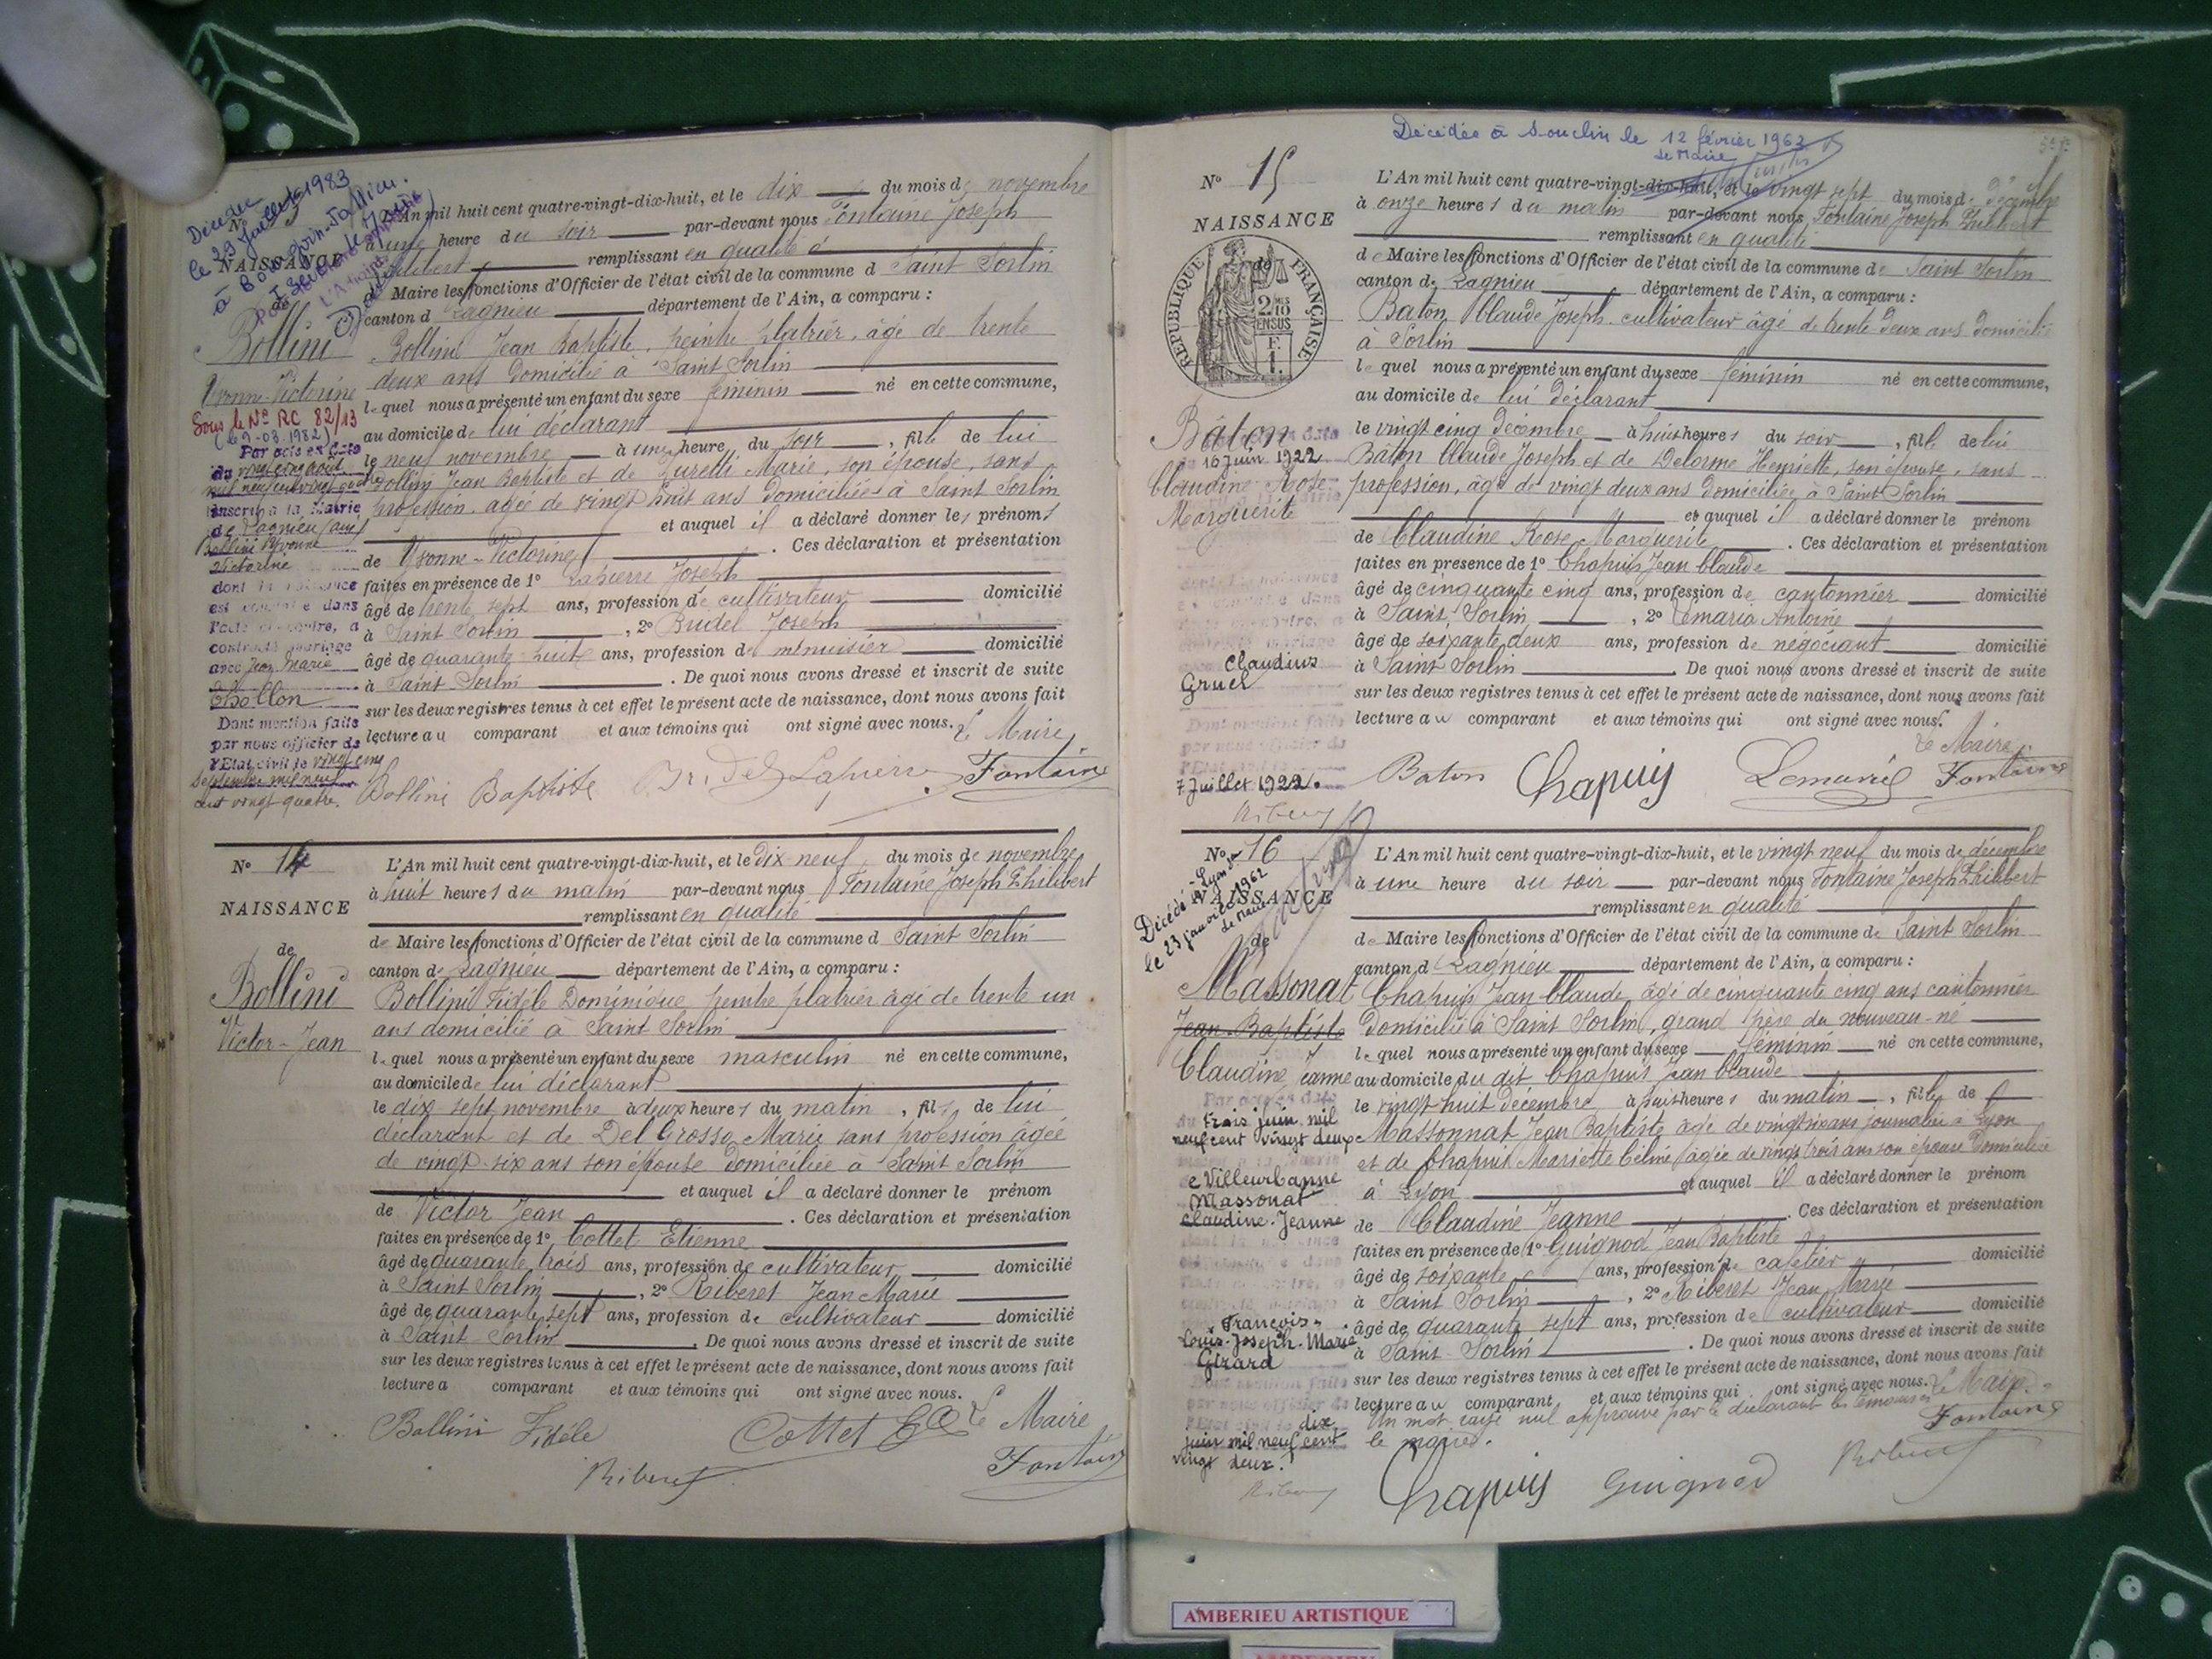 Décédée
le 29 Juillet 1983
à Bourgoin-Jallieu
NAISSANCE
de
Bollini
Yvonne-Victorine
Sous le N° RC 82/13
(le 9-03-1982)
Par acte en date
du vingt cinq août
mil neuf cent vingt quatre
inscrit à la Mairie
de Lagnieu (Ain)
Bollini Yvonne
Victorine
dont la naissance
est constatée dans
l'acte ci-contre, a
contracté mariage
avec Jean Marie
Chollon
Dont mention faite
par nous officier de
l'Etat civil le vingt cinq
Septembre mil neuf
cent vingt quatre.
L'An mil huit cent quatre-vingt-dix-huit, et le dix du mois de novembre
à une heure du soir par-devant nous Fontaine Joseph
Philibert remplissant en qualité
de Maire les fonctions d'Officier de l'état civil de la commune d Saint Sorlin
canton d Lagnieu département de l'Ain, a comparu :
Bollini Jean Baptiste, peintre plâtrier, âgé de trente
deux ans domicilié à Saint Sorlin
lequel nous a présenté un enfant du sexe féminin né en cette commune,
au domicile de lui déclarant
le neuf novembre à une heure du soir, fille de lui
Bollini Jean Baptiste et de Marie, son épouse, sans
profession, âgée de vingt huit ans domiciliée à Saint Sorlin
et auquel il a déclaré donner les prénoms
de Yvonne-Victorine. Ces déclaration et présentation
faites en présence de 1° Lapierre Joseph
âgé de trente sept ans, profession de cultivateur domicilié
à Saint Sorlin, 2° Brudel Joseph
âgé de quarante huit ans, profession de menuisier domicilié
à Saint Sorlin. De quoi nous avons dressé et inscrit de suite
sur les deux registres tenus à cet effet le présent acte de naissance, dont nous avons fait
lecture au comparant et aux témoins qui ont signé avec nous. Le Maire
Bollini Baptiste Brudel Lapierre Fontaine
N° 14
NAISSANCE
de
Bollini
Victor-Jean
L'An mil huit cent quatre-vingt-dix-huit, et le dix neuf du mois de novembre
à huit heures du matin par-devant nous Fontaine Joseph Philibert
remplissant en qualité
de Maire les fonctions d'Officier de l'état civil de la commune d Saint Sorlin
canton de Lagnieu département de l'Ain, a comparu :
Bollini Fidèle Dominique peintre plâtrier âgé de trente un
ans domicilié à Saint Sorlin
lequel nous a présenté un enfant du sexe masculin né en cette commune,
au domicile de lui déclarant
le dix sept novembre à deux heures du matin, fils de lui
déclarant et de Del Grosso Marie sans profession âgée
de vingt-six ans son épouse domiciliée à Saint Sorlin
et auquel il a déclaré donner le prénom
de Victor Jean. Ces déclaration et présentation
faites en présence de 1° Cottet Etienne
âgé de quarante trois ans, profession de cultivateur domicilié
à Saint Sorlin, 2° Riberet Jean Marie
âgé de quarante sept ans, profession de cultivateur domicilié
à Saint Sorlin. De quoi nous avons dressé et inscrit de suite
sur les deux registres tenus à cet effet le présent acte de naissance, dont nous avons fait
lecture a comparant et aux témoins qui ont signé avec nous.
Bollini Fidèle Cottet Le Maire
Riberet Fontaine
Décédée à Souclin le 12 février 1963
Le Maire
N° 15
NAISSANCE
de
REPUBLIQUE FRANÇAISE
2/10 EN SUS
1 F.
Bâton
16 Juin 1922
Claudine Rose
Marguerite
Claudius
Gruel
7 Juillet 1922.
Riberet
L'An mil huit cent quatre-vingt-dix-huit, et le vingt sept du mois de décembre
à onze heures du matin par-devant nous Fontaine Joseph Philibert
remplissant en qualité
de Maire les fonctions d'Officier de l'état civil de la commune de Saint Sorlin
canton de Lagnieu département de l'Ain, a comparu :
Baton Claude Joseph cultivateur âgé de trente deux ans domicilié
à Sorlin
lequel nous a présenté un enfant du sexe féminin né en cette commune,
au domicile de lui déclarant
le vingt cinq décembre à huit heures du soir, fille de lui
Bâton Claude Joseph et de Delorme Henriette, son épouse, sans
profession, âgé de vingt deux ans domiciliée à Saint Sorlin
et auquel il a déclaré donner le prénom
de Claudine Rose Marguerite. Ces déclaration et présentation
faites en présence de 1° Chapuis Jean Claude
âgé de cinquante cinq ans, profession de cantonnier domicilié
à Saint Sorlin, 2° Antoine
âgé de soixante deux ans, profession de négociant domicilié
à Saint Sorlin. De quoi nous avons dressé et inscrit de suite
sur les deux registres tenus à cet effet le présent acte de naissance, dont nous avons fait
lecture au comparant et aux témoins qui ont signé avec nous.
Le Maire
Baton Chapuis Fontaine
N° 16
NAISSANCE
de
Décédée à Lyon
le 23 janvier 1962
Le Maire
Massonat
Jean-Baptiste
Claudine Jeanne
Par acte en date
du trois juin mil
neuf cent vingt deux
Villeurbanne
Massonat
Claudine-Jeanne
François-
Louis-Joseph-Marie
Girard
dix
juin mil neuf cent
vingt deux.
Riberet
L'An mil huit cent quatre-vingt-dix-huit, et le vingt neuf du mois de décembre
à une heure du soir par-devant nous Fontaine Joseph Philibert
remplissant en qualité
de Maire les fonctions d'Officier de l'état civil de la commune de Saint Sorlin
canton d Lagnieu département de l'Ain, a comparu :
Chapuis Jean Claude âgé de cinquante cinq ans cantonnier
domicilié à Saint Sorlin, grand père du nouveau-né
lequel nous a présenté un enfant du sexe féminin né en cette commune,
au domicile du dit Chapuis Jean Claude
le vingt huit décembre à huit heures du matin, fille de
Massonnat Jean Baptiste âgé de ans journalier à Lyon
et de Chapuis Mariette Céline âgée de vingt trois ans son épouse domiciliée
à Lyon et auquel il a déclaré donner le prénom
de Claudine Jeanne. Ces déclaration et présentation
faites en présence de 1° Guignod Jean Baptiste
âgé de soixante ans, profession de cafetier domicilié
à Saint Sorlin, 2° Riberet Jean Marie
âgé de quarante sept ans, profession de cultivateur domicilié
à Saint Sorlin. De quoi nous avons dressé et inscrit de suite
sur les deux registres tenus à cet effet le présent acte de naissance, dont nous avons fait
lecture au comparant et aux témoins qui ont signé avec nous. Le Maire
Un mot rayé nul approuvé par le déclarant les témoins et
le maire. Fontaine
Chapuis Guignod Riberet
AMBERIEU ARTISTIQUE